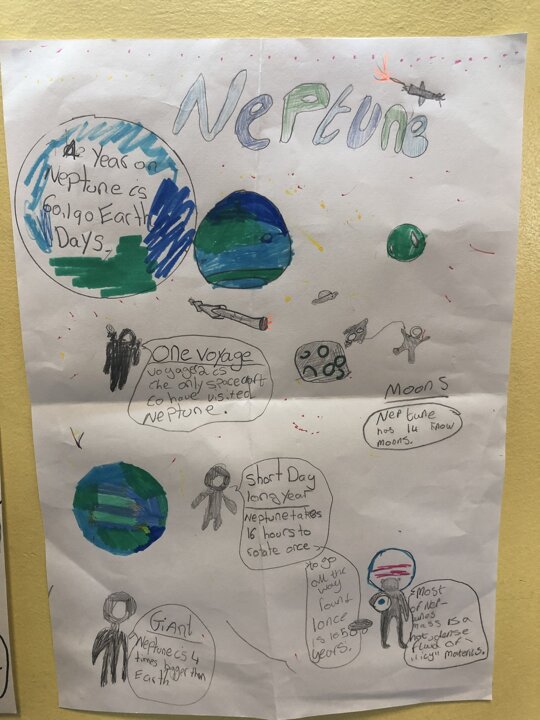 Neptune
A Year on
Neptune is
60,190 Earth
Days.
One Voyage
Voyager 2 is
the only spacecraft
to have visited
Neptune.
Moons
Neptune
has 14 know
moons.
Short Day
long year
Neptune takes
16 hours to
rotate once
to go
all the
way
round
once
is 165
years.
Giant
Neptune is 4
times bigger than
Earth
Most
of Nep-
tunes
mass is a
hot dense
fluid of
"icy" materials.